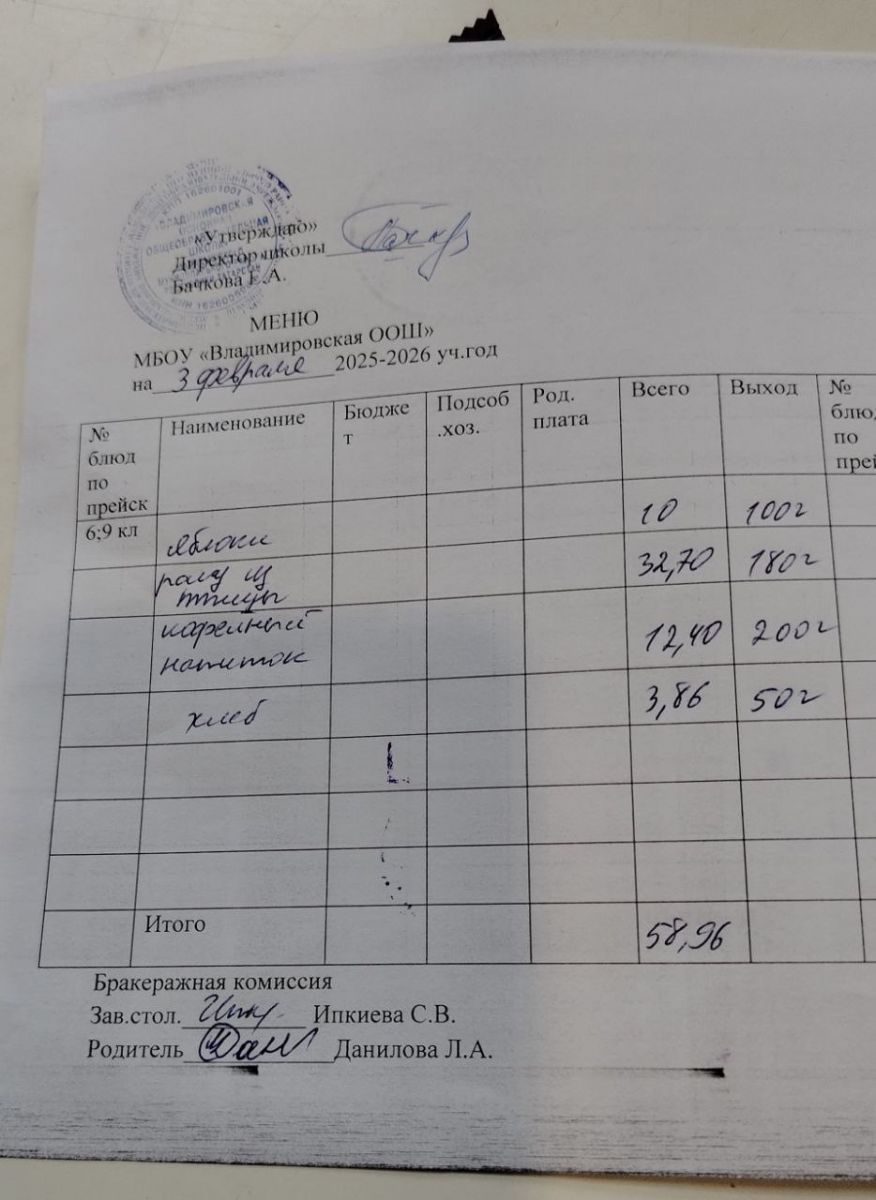 КПП 162601001
ВЛАДИМИРОВСКАЯ
ОСНОВНАЯ
ОБЩЕОБРАЗОВАТЕЛЬНАЯ
ШКОЛА
«Утверждаю»
Директор школы
Бачкова Е.А.
МЕНЮ
МБОУ «Владимировская ООШ»
на 3 февраля 2025-2026 уч.год
№ блюд по прейск Наименование Бюджет Подсоб.хоз. Род. плата Всего Выход № блюд по прей
6;9 кл яблоки 10 100г
рагу из птицы 32,70 180г
кофейный напиток 12,40 200г
хлеб 3,86 50г
Итого 58,96
Бракеражная комиссия
Зав.стол. Ипкиева С.В.
Родитель Данилова Л.А.